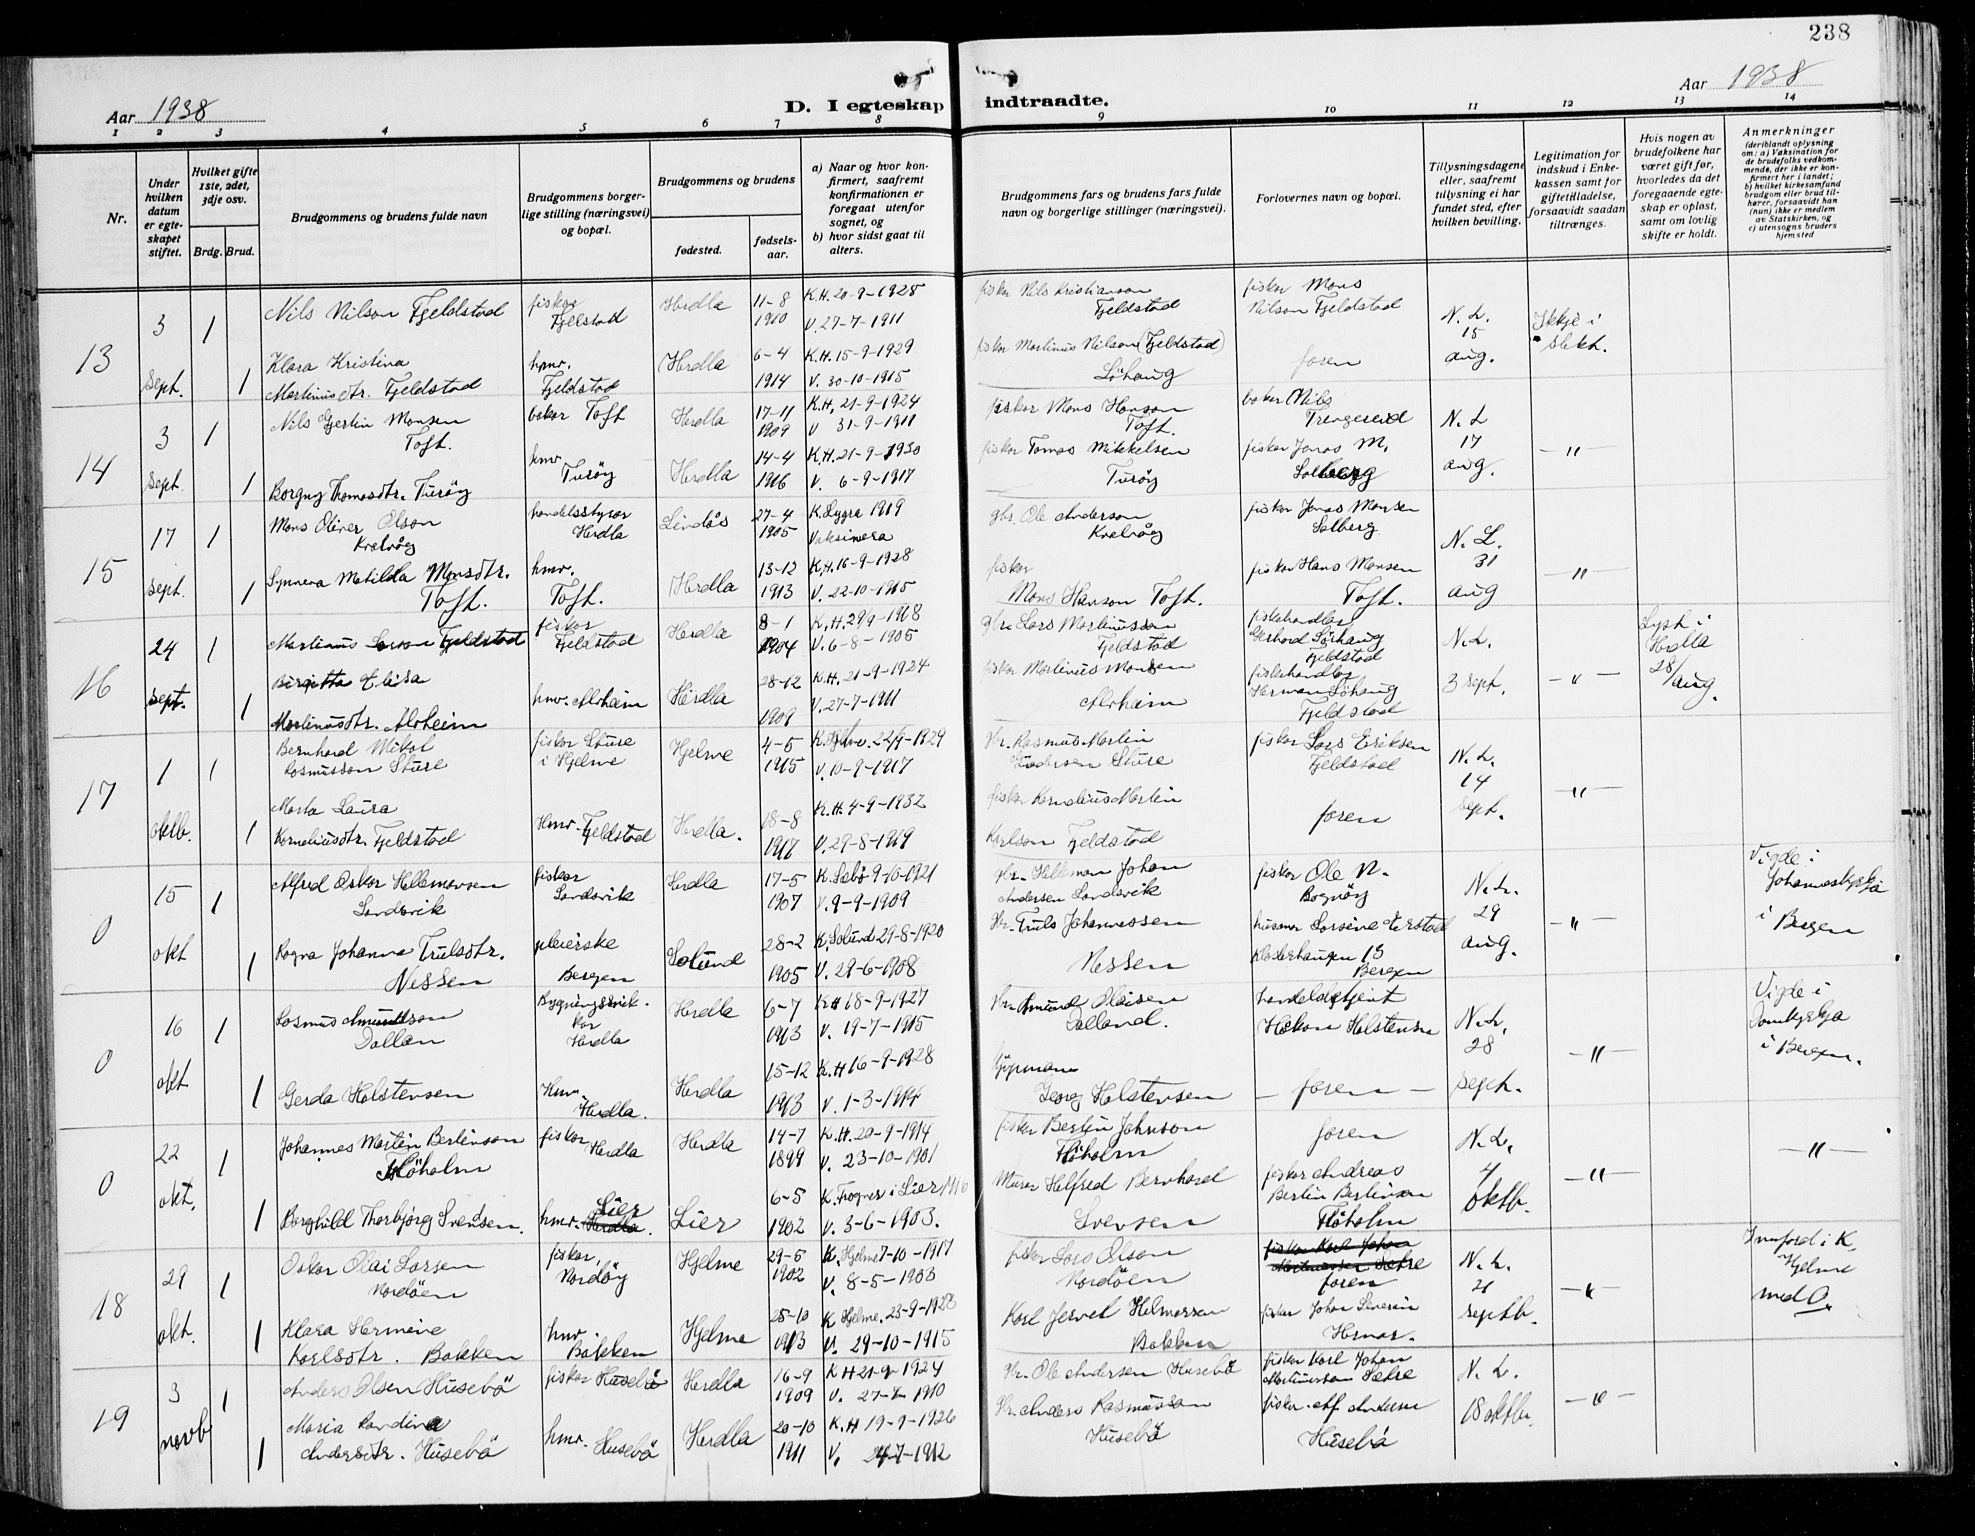 238
Aar 1938
D. I egteskap indtraadte.
Aar 1938
1 2 3 4 5 6 7 8 9 10 11 12 13 14
Nr.
Under hvilken datum er egteskapet stiftet.
Hvilket gifte 1ste, 2det, 3dje osv.
Brdg. Brud.
Brudgommens og brudens fulde navn
Brudgommens borgerlige stilling (næringsvei) og bopæl.
Brudgommens og brudens
fødested.
fødselsaar.
a) Naar og hvor konfirmert, saafremt konfirmationen er foregaat utenfor sognet, og
b) hvor sidst gaat til alters.
Brudgommens fars og brudens fars fulde navn og borgerlige stillinger (næringsvei).
Forlovernes navn og bopæl.
Tillysningsdagene eller, saafremt tillysning ei har fundet sted, efter hvilken bevilling.
Legitimation for indskud i Enkekassen samt for giftetilladelse, forsaavidt saadan tiltrænges.
Hvis nogen av brudefolkene har været gift før, hvorledes da det foregaaende egteskap er opløst, samt om lovlig skifte er holdt.
Anmerkninger
(deriblandt oplysning om: a) Vaksination for de brudefolks vedkommende, der ikke er konfirmert her i landet; b) hvilket kirkesamfund brudgom eller brud tilhører, forsaavidt han (hun) ikke er medlem av Statskirken, og c) utensogns bruders hjemsted
13
3 sept. 1
Nils Nilson Fjeldstad
fiskar Fjelstad
Herdla
11-8 1910
K.H. 20-9-1925
V. 27-7-1911
fiskar Nils Kristianson Fjeldstad
fiskar Mons Nilson Fjeldstad
N. L. 15 aug.
Ikkje i slekt.
1
Klara Kristina Martinusdtr. Fjeldstad
hmv. Fjeldstad
Herdla
6-4 1914
K.H. 15-9-1929
V. 30-10-1915
fiskar Martinus Nilson (Fjeldstad) Löhaug
faren
14
3 sept. 1
Nils Gjertin Monsen Toft.
bakar Toft
Herdla
17-11 1909
K.H. 21-9-1924
V 31-9-1911
fiskar Mons Hanson Toft.
baker Nils Trengereid
N. L 17 aug.
-"-
1
Borgny Thomasdtr. Turöy
hmv Turöy
Herdla
14-4 1916
K.H. 21-9-1930
V. 6-9-1917
fiskar Tomas Mikkelsen Turöy
fiskar Jonas M. Solberg
15
17 sept. 1
Mons Oliver Olson Kvalvåg
handelsstyrar Herdla
Lindås
27-4 1905
K. Lygra 1919
Vaksinera
gbr. Ole Anderson Kvalvåg
fiskar Jonas Monsen Solberg
N. L. 31 aug
-"-
1
Synneva Matilda Monsdtr. Toft.
hmv. Toft.
Herdla
13-12 1913
K.H. 16-9-1928
V. 22-10-1915
fiskar Mons Hanson Toft.
fiskar Hans Monsen Toft.
16
24 sept. 1
Martinus Larson Fjeldstad
fiskar Fjeldstad
Herdla
8-1 1904
K.H. 29/9-1918
V. 6-8-1905
gbr. Lars Martinusson Fjeldstad
fiskehandlar Gerhard Lörhaug Fjeldstad
N. L. 3 sept.
-"-
Lyst i Herdla 28/aug.
1
Birgitta Elisa Martinusdtr. Alvheim
hmv. Alvheim
Herdla
28-12 1909
K.H. 21-9-1924
V. 27-7-1911
fiskar Martinus Monsen Alvheim
fiskehandlar Herman Löhaug Fjeldstad
17
1 oktb. 1
Bernhard Mikal Rasmusson Sture
fiskar Sture i Hjelme
Hjelme
4-5 1915
K. Hjelme. 22/9-1929
V. 10-9-1917
gbr. Rasmus Martin Andersen Sture
fiskar Lars Eriksen Fjeldstad
N. L. 14 sept.
-"-
1
Marta Laura Korneliusdtr. Fjeldstad
Hmv. Fjeldstad
Herdla.
18-8 1917
K.H. 4-9-1932
V. 29-8-1919
fiskar Kornelius Martin Karlson Fjeldstad
faren
0
15 okt 1
Alfred Oskar Hellemansen Landsvik
fiskar Landsvik
Herdla
17-5 1907
K. Sæbö 9-10-1921
V. 9-9-1909
gbr. Helleman Johan Andersen Landsvik
fiskar Ole N. Bognöy
N. L. 29 aug.
-"-
Vigde i Johanneskyrkja i Bergen
1
Ragna Johanna Trulsdtr. Nessen
pleierske Bergen
Solund
28-2 1905
K. Solund 29-8-1920
V. 29-6-1908
gbr. Truls Johannessen Nessen
husmor Larsine Erstad Klosterhaugen 15 Bergen
0
16 okt 1
Rasmus Amundson Dalland
Bygningssnikkar Herdla
Herdla
6-7 1913
K.H 18-9-1927
V. 19-7-1915
gbr. Amund Olaisen Dalland.
handelsbetjent Håkon Holstensen
N. L. 28 sept.
-"-
Vigde i Domkyrkja i Bergen.
1
Gerda Holstensen
Hmv. Herdla.
Herdla
15-12 1913
K.H 16-9-1928
V. 1-3-1915
Georg Holstensen
- faren -
0
22 okt. 1
Johannes Martin Berlinson Flöholm
fiskar Herdla
Herdla
14-7 1899
K.H. 20-9-1914
V. 23-10-1901
fiskar Berlin Johnson Flöholm
faren
N. L. 4 oktb.
-"-
-"-
1
Borghild Thorbjörg Svendsen.
hmv. Lier Herdla
Lier
6-5 1902
K. Frogner i Lier 1916
V. 3-6-1903.
Murar Helfred Bernhard Svensen
fiskar Andreas Berlin Berlinson Flöholm
18
29 okt. 1
Oskar Olai Larsen Nordöen
fiskar, Nordöy
Hjelme
29-5 1902
K. Hjelme 7-10-1917
V. 8-5-1903
fiskar Lars Olson Nordöen
fiskar Karl Johan Martinussen Sætre
faren
N. L. 21 septb.
-"-
Innförd i K. Hjelme med 0.
1
Klara Hermine Karlsdtr. Bakken
hmv. Bakken
Hjelme
25-10 1913
K Hjelme. 23-9-1928
V. 29-10-1915
Karl Jervel Hilmarsen Bakken
fiskar Johan Severin Hernar.
19
3 novb 1
Anders Olsen Husebö
fiskar Husebö
Herdla
16-9 1909
K H 21-9-1924
V. 27-7-1910
gbr. Ole Andersen Husebö
fiskar Karl Johan Martinussen Sætre
N. L. 18 oktb.
-"-
1
Maria Randina Andersdtr. Husebö
hmv. Husebö
Herdla
20-10 1911
K. H 19-9-1926
V. 24-7-1912
gbr. Anders Rasmussen Husebö
fiskar Alf Andersen Husebö